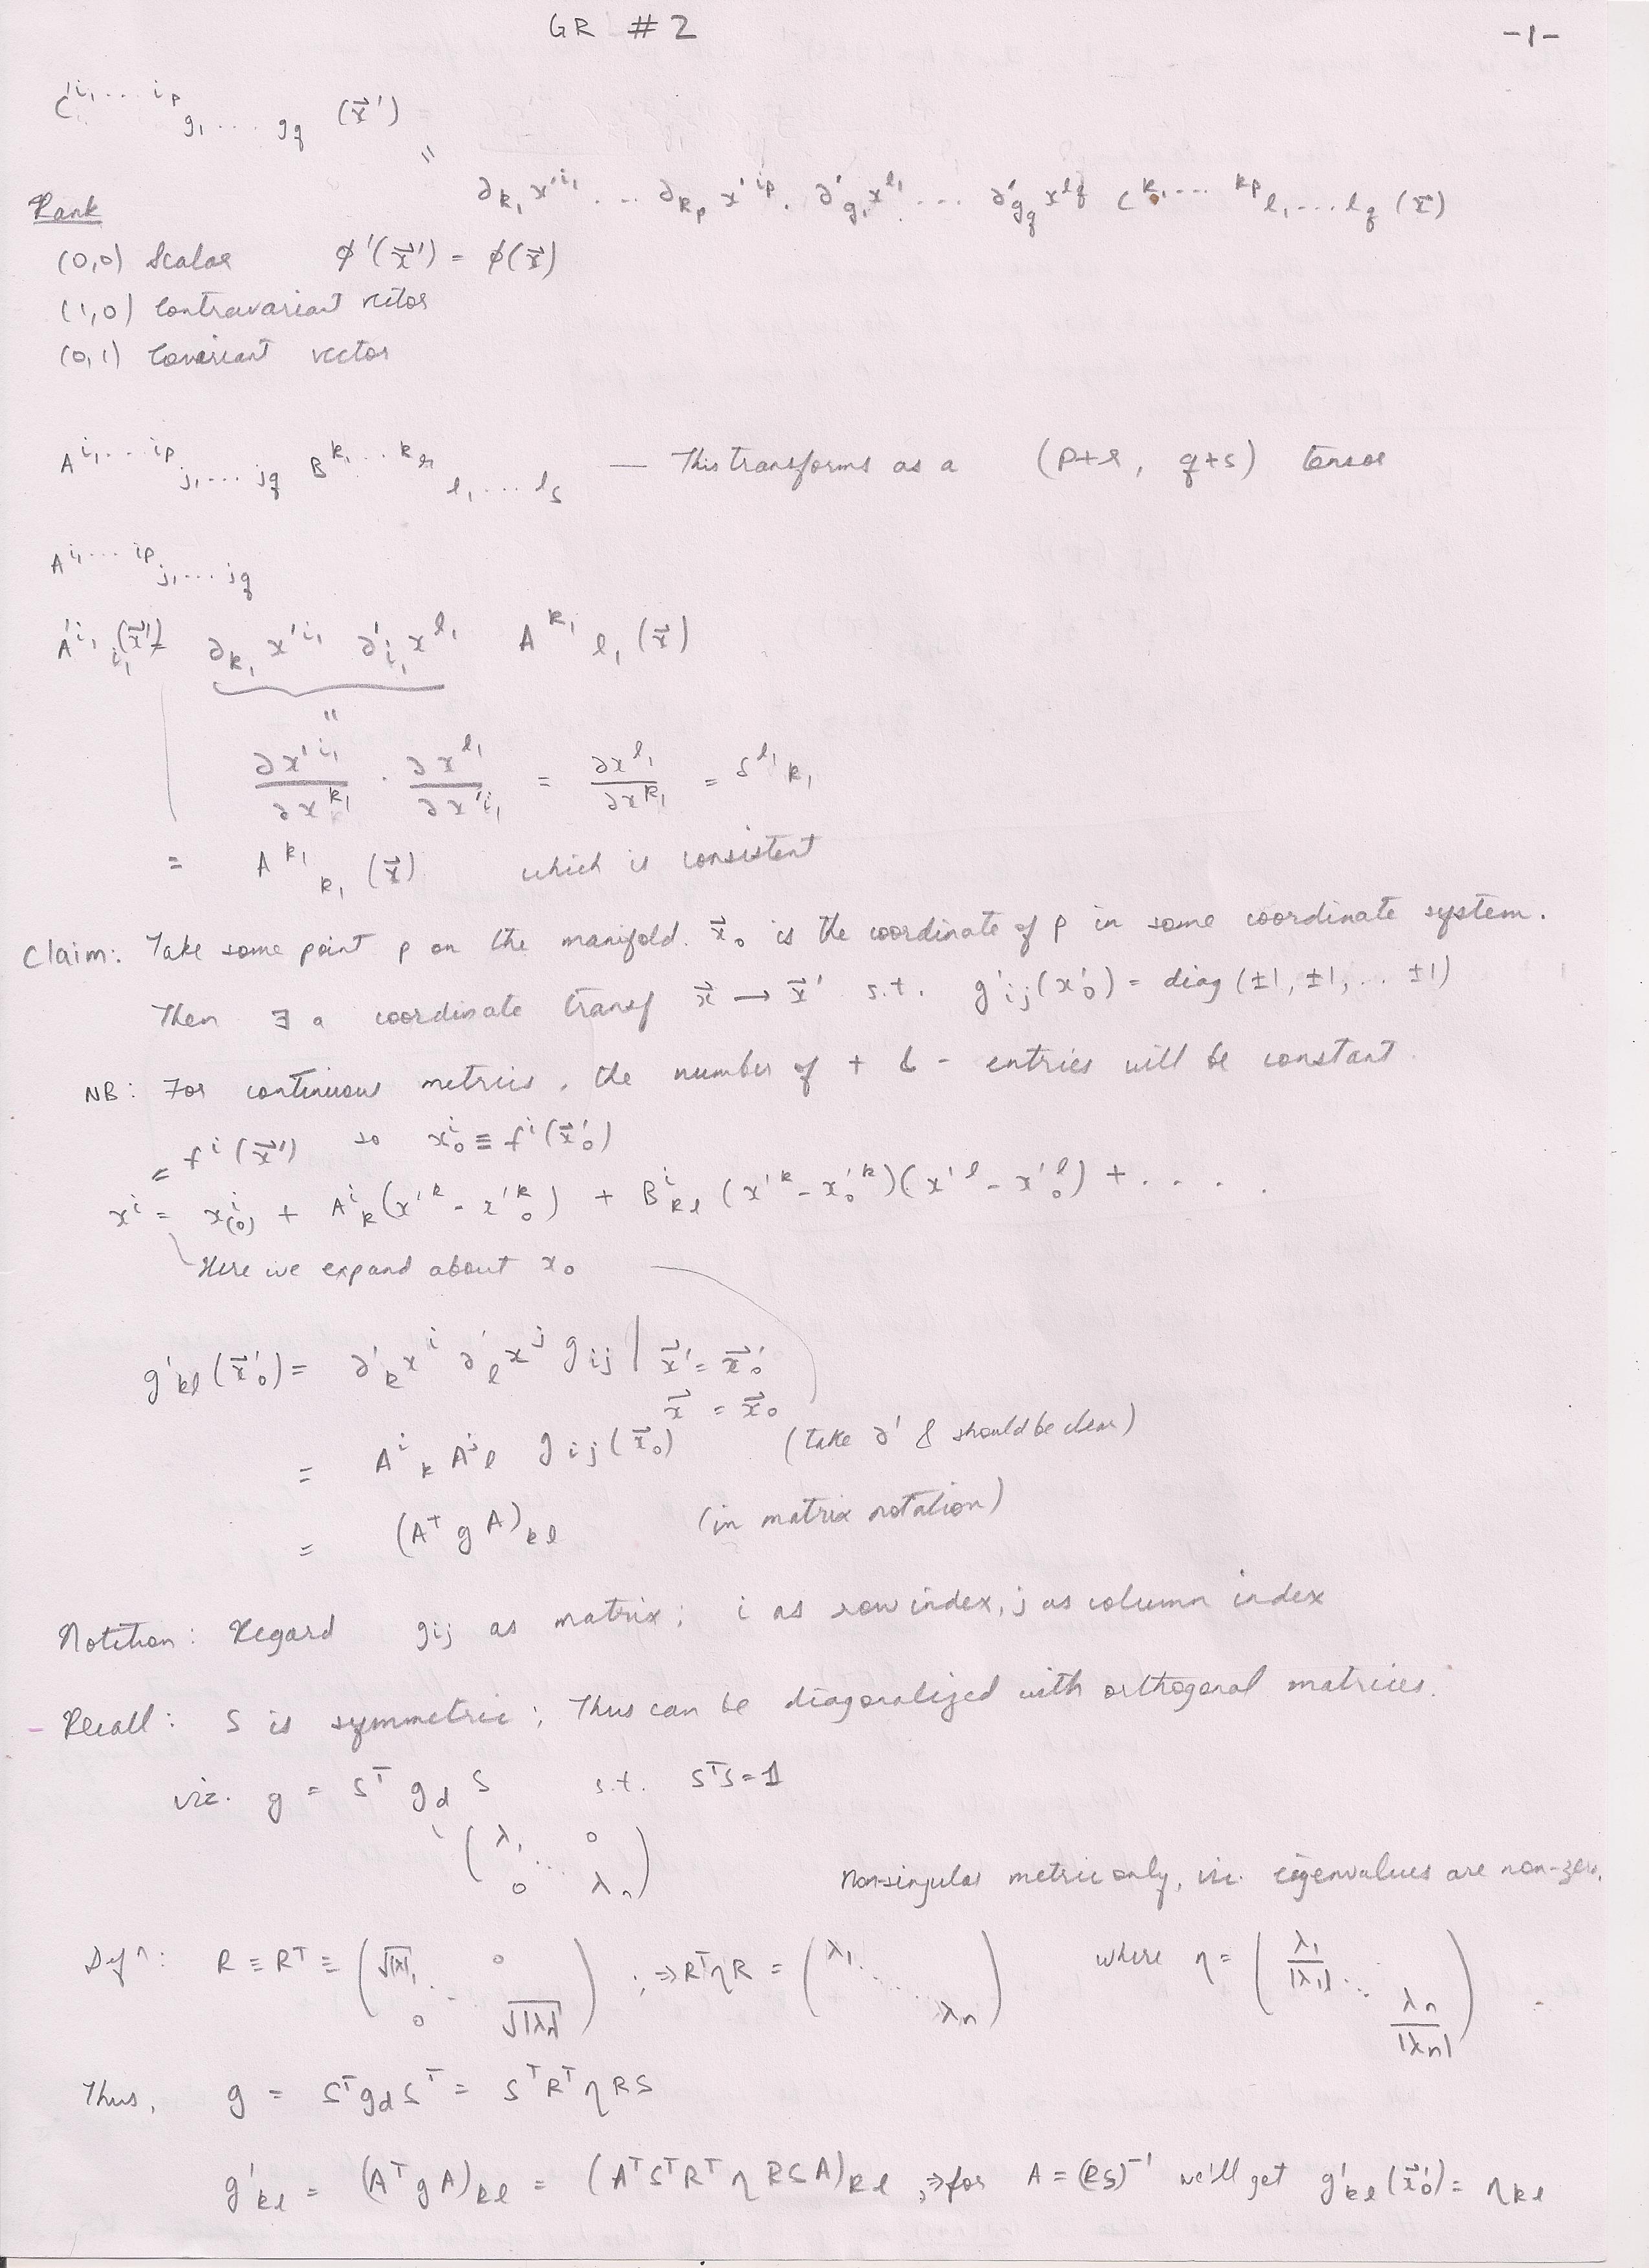 GR #2 -1-
C'^{i_1 ... i_p}_{g_1 ... g_q} (\vec{x}')
= ∂_{k_1} x'^{i_1} ... ∂_{k_p} x'^{i_p} . ∂'_{g_1} x^{l_1} ... ∂'_{g_q} x^{l_q} C^{k_1 ... k_p}_{l_1 ... l_q} (\vec{x})
Rank
(0,0) Scalar φ'(\vec{x}') = φ(\vec{x})
(1,0) Contravariant vector
(0,1) Covariant vector
A^{i_1 ... i_p}_{j_1 ... j_q} B^{k_1 ... k_r}_{l_1 ... l_s} — This transforms as a (p+r, q+s) tensor
A^{i_1 ... i_p}_{j_1 ... j_q}
A'^{i_1}_{i_1}(\vec{x}') = ∂_{k_1} x'^{i_1} ∂'_{i_1} x^{l_1} A^{k_1}_{l_1} (\vec{x})
=
∂x'^{i_1}/∂x^{k_1} · ∂x^{l_1}/∂x'^{i_1} = ∂x^{l_1}/∂x^{k_1} = δ^{l_1}_{k_1}
= A^{k_1}_{k_1} (\vec{x}) which is consistent
Claim: Take some point p on the manifold. \vec{x}_0 is the coordinate of p in some coordinate system.
Then ∃ a coordinate transf \vec{x} → \vec{x}' s.t. g'_{ij}(x'_0) = diag (±1, ±1, ... ±1)
NB: For continuous metrics, the number of + & - entries will be constant.
= f^i(\vec{x}') so x^i_0 ≡ f^i(\vec{x}'_0)
x^i = x^i_{(0)} + A^i_k (x'^k - x'^k_0) + B^i_{kl} (x'^k - x'^k_0)(x'^l - x'^l_0) + ....
Here we expand about x_0
g'_{kl}(\vec{x}'_0) = ∂'_k x^i ∂'_l x^j g_{ij} | \vec{x}' = \vec{x}'_0
\vec{x} = \vec{x}_0
= A^i_k A^j_l g_{ij}(\vec{x}_0) (take ∂' & should be clear)
= (A^T g A)_{kl} (in matrix notation)
Notition: Regard g_{ij} as matrix; i as row index, j as column index
- Recall: S is symmetric; Thus can be diagonalized with orthogonal matrices.
viz. g = S^T g_d S s.t. S^T S = 1
(λ_1 0 ... 0 λ_n)
Non-singular metric only, viz. eigenvalues are non-zero.
Defn: R ≡ R^T ≡ (√|λ|_1 0 ... 0 √|λ_n|) ; ⇒ R^T η R = (λ_1 ... λ_n) where η = (λ_1/|λ_1| ... λ_n/|λ_n|)
Thus, g = S^T g_d S^T = S^T R^T η R S
g'_{kl} = (A^T g A)_{kl} = (A^T S^T R^T η R S A)_{kl} , ⇒ for A = (RS)^{-1} we'll get g'_{kl}(\vec{x}'_0) = η_{kl}